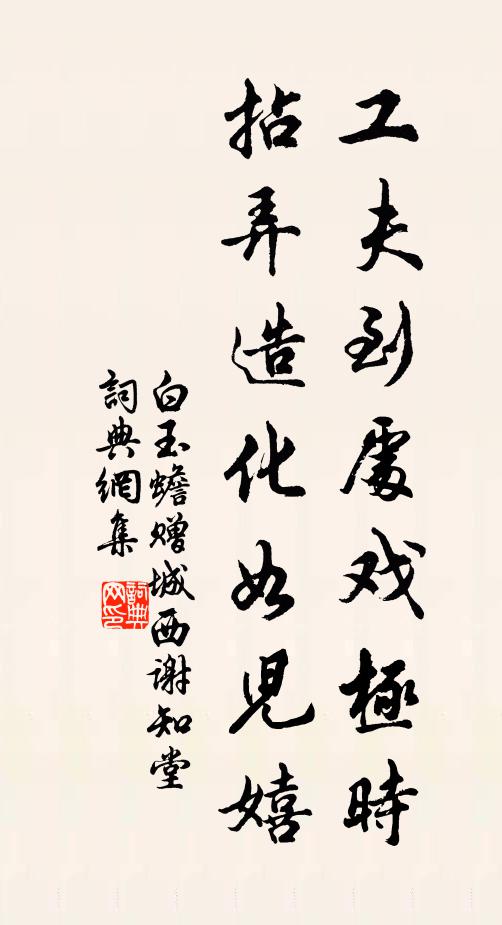 工夫到處戏極時
拈弄造化如児嬉
白玉蟾赠城西谢知堂
詞典網集
詞典网印